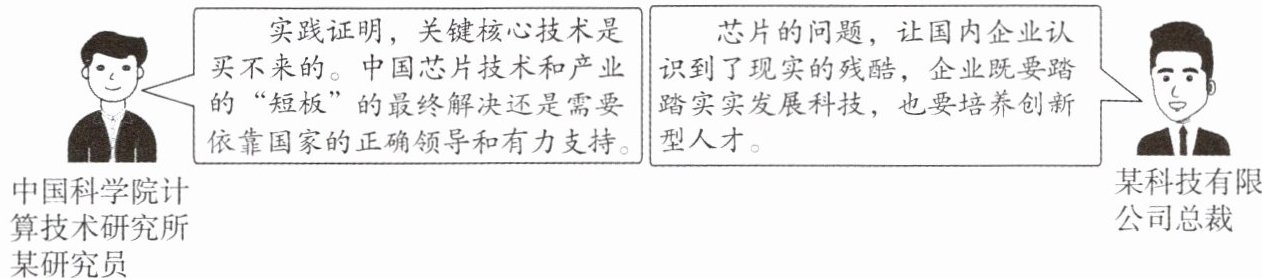 实践证明，关键核心技术是
买不来的。中国芯片技术和产业
的“短板”的最终解决还是需要
依靠国家的正确领导和有力支持。
中国科学院计
算技术研究所
某研究员
芯片的问题，让国内企业认
识到了现实的残酷，企业既要踏
踏实实发展科技，也要培养创新
型人才。
某科技有限
公司总裁